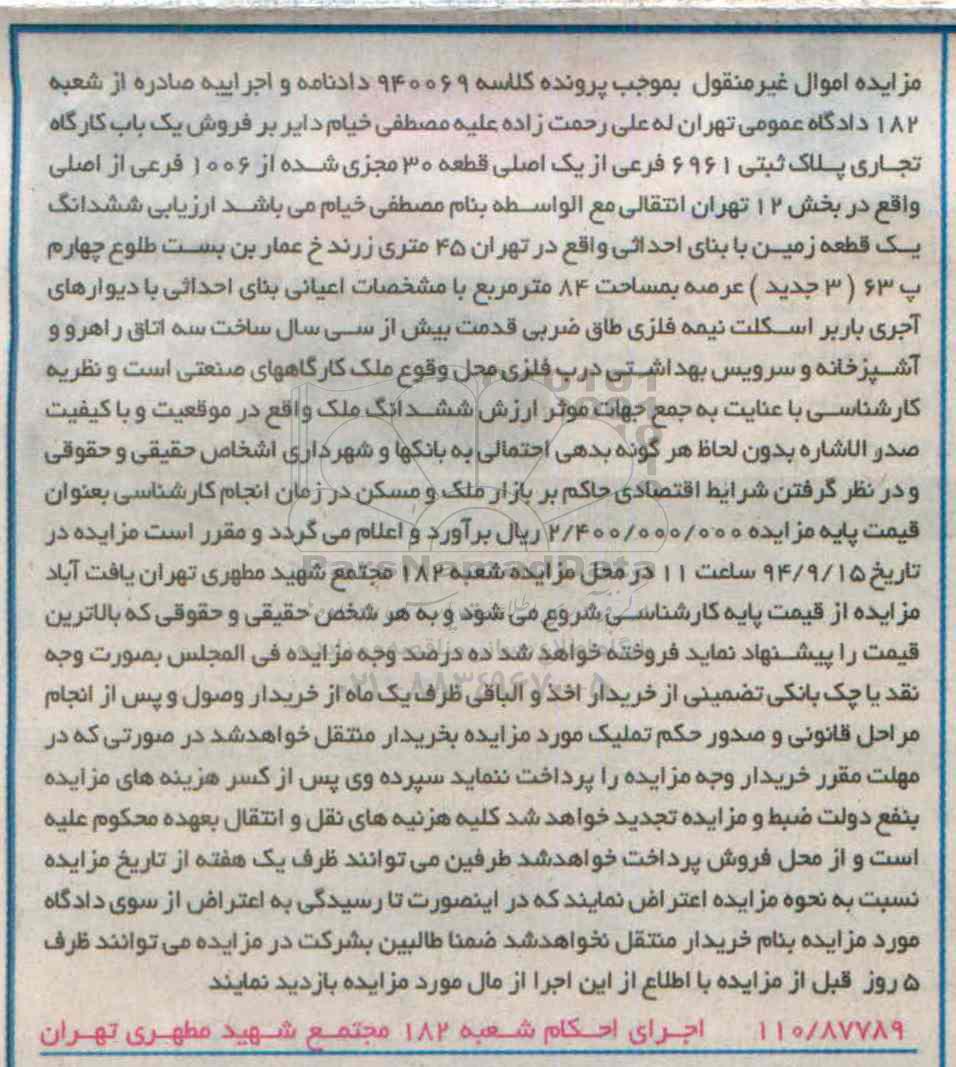 مزایده اموال غیرمنقول بموجب پرونده کلاسه ۹۴۰۰۶۹ دادنامه و اجراییه صادره از شعبه
۱۸۲ دادگاه عمومی تهران له علی رحمت زاده علیه مصطفی خیام دایر بر فروش یک باب کارگاه
تجاری پلاک ثبتی ۶۹۶۱ فرعی از یک اصلی قطعه ۳۰ مجزی شده از ۱۰۰۶ فرعی از اصلی
واقع در بخش ۱۲ تهران انتقالی مع الواسطه بنام مصطفی خیام می باشد ارزیابی ششدانگ
یک قطعه زمین با بنای احداثی واقع در تهران ۴۵ متری زرند خ عمار بن بست طلوع چهارم
پ ۶۳ ( ۳ جدید ) عرصه بمساحت ۸۴ مترمربع با مشخصات اعیانی بنای احداثی با دیوارهای
آجری باربر اسکلت نیمه فلزی طاق ضربی قدمت بیش از سی سال ساخت سه اتاق راهرو و
آشپزخانه و سرویس بهداشتی درب فلزی محل وقوع ملک کارگاههای صنعتی است و نظریه
کارشناسی با عنایت به جمع جهات موثر ارزش ششدانگ ملک واقع در موقعیت و با کیفیت
صدر الاشاره بدون لحاظ هر گونه بدهی احتمالی به بانکها و شهرداری اشخاص حقیقی و حقوقی
و در نظر گرفتن شرایط اقتصادی حاکم بر بازار ملک و مسکن در زمان انجام کارشناسی بعنوان
قیمت پایه مزایده ۲/۴۰۰/۰۰۰/۰۰۰ ریال برآورد و اعلام می گردد و مقرر است مزایده در
تاریخ ۹۴/۹/۱۵ ساعت ۱۱ در محل مزایده شعبه ۱۸۲ مجتمع شهید مطهری تهران یافت آباد
مزایده از قیمت پایه کارشناسی شروع می شود و به هر شخص حقیقی و حقوقی که بالاترین
قیمت را پیشنهاد نماید فروخته خواهد شد ده درصد وجه مزایده فی المجلس بصورت وجه
نقد یا چک بانکی تضمینی از خریدار اخذ و الباقی ظرف یک ماه از خریدار وصول و پس از انجام
مراحل قانونی و صدور حکم تملیک مورد مزایده بخریدار منتقل خواهدشد در صورتی که در
مهلت مقرر خریدار وجه مزایده را پرداخت ننماید سپرده وی پس از کسر هزینه های مزایده
بنفع دولت ضبط و مزایده تجدید خواهد شد کلیه هزنیه های نقل و انتقال بعهده محکوم علیه
است و از محل فروش پرداخت خواهدشد طرفین می توانند ظرف یک هفته از تاریخ مزایده
نسبت به نحوه مزایده اعتراض نمایند که در اینصورت تا رسیدگی به اعتراض از سوی دادگاه
مورد مزایده بنام خریدار منتقل نخواهدشد ضمنا طالبین بشرکت در مزایده می توانند ظرف
۵ روز قبل از مزایده با اطلاع از این اجرا از مال مورد مزایده بازدید نمایند
۱۱۰/۸۷۷۸۹ اجرای احکام شعبه ۱۸۲ مجتمع شهید مطهری تهران
ParsNamadData